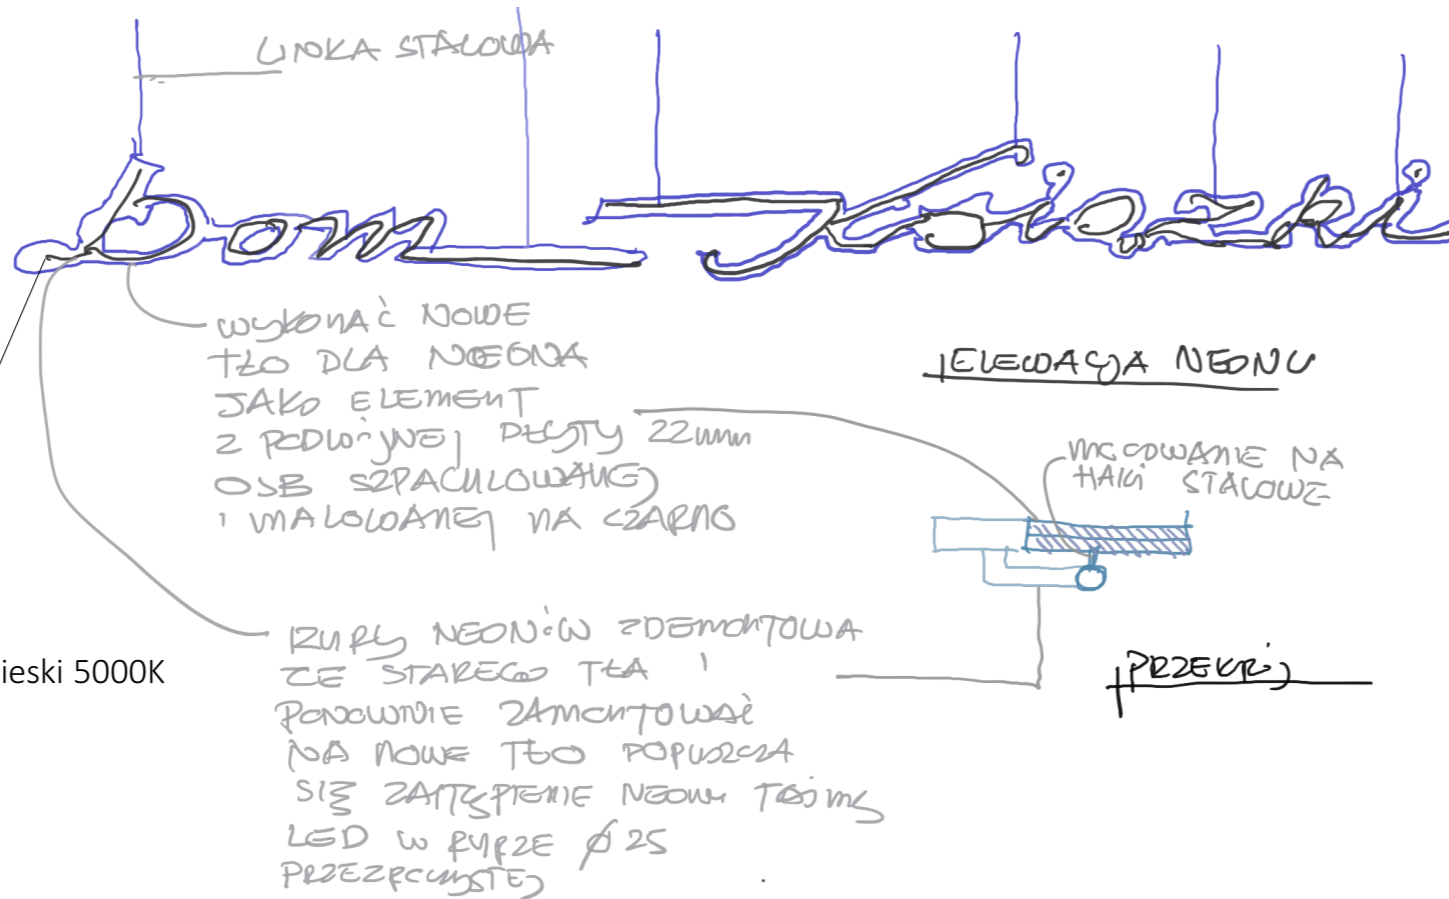 LINKA STALOWA
Dom Książki
WYKONAĆ NOWE
TŁO DLA NEONA
JAKO ELEMENT
Z PODWÓJNEJ PŁYTY 22mm
OSB SZPACHLOWANEJ
I MALOWANEJ NA CZARNO
ELEWACJA NEONU
MOCOWANIE NA
HAKI STALOWE
RURY NEONÓW ZDEMONTOWA
ZE STAREGO TŁA I
PONOWNIE ZAMONTOWAĆ
NA NOWE TŁO DOPUSZCZA
SIĘ ZASTĄPIENIE NEONU TAŚMĄ
LED W RURZE Ø25
PRZEZROCZYSTEJ
PRZEKRÓJ
ieski 5000K